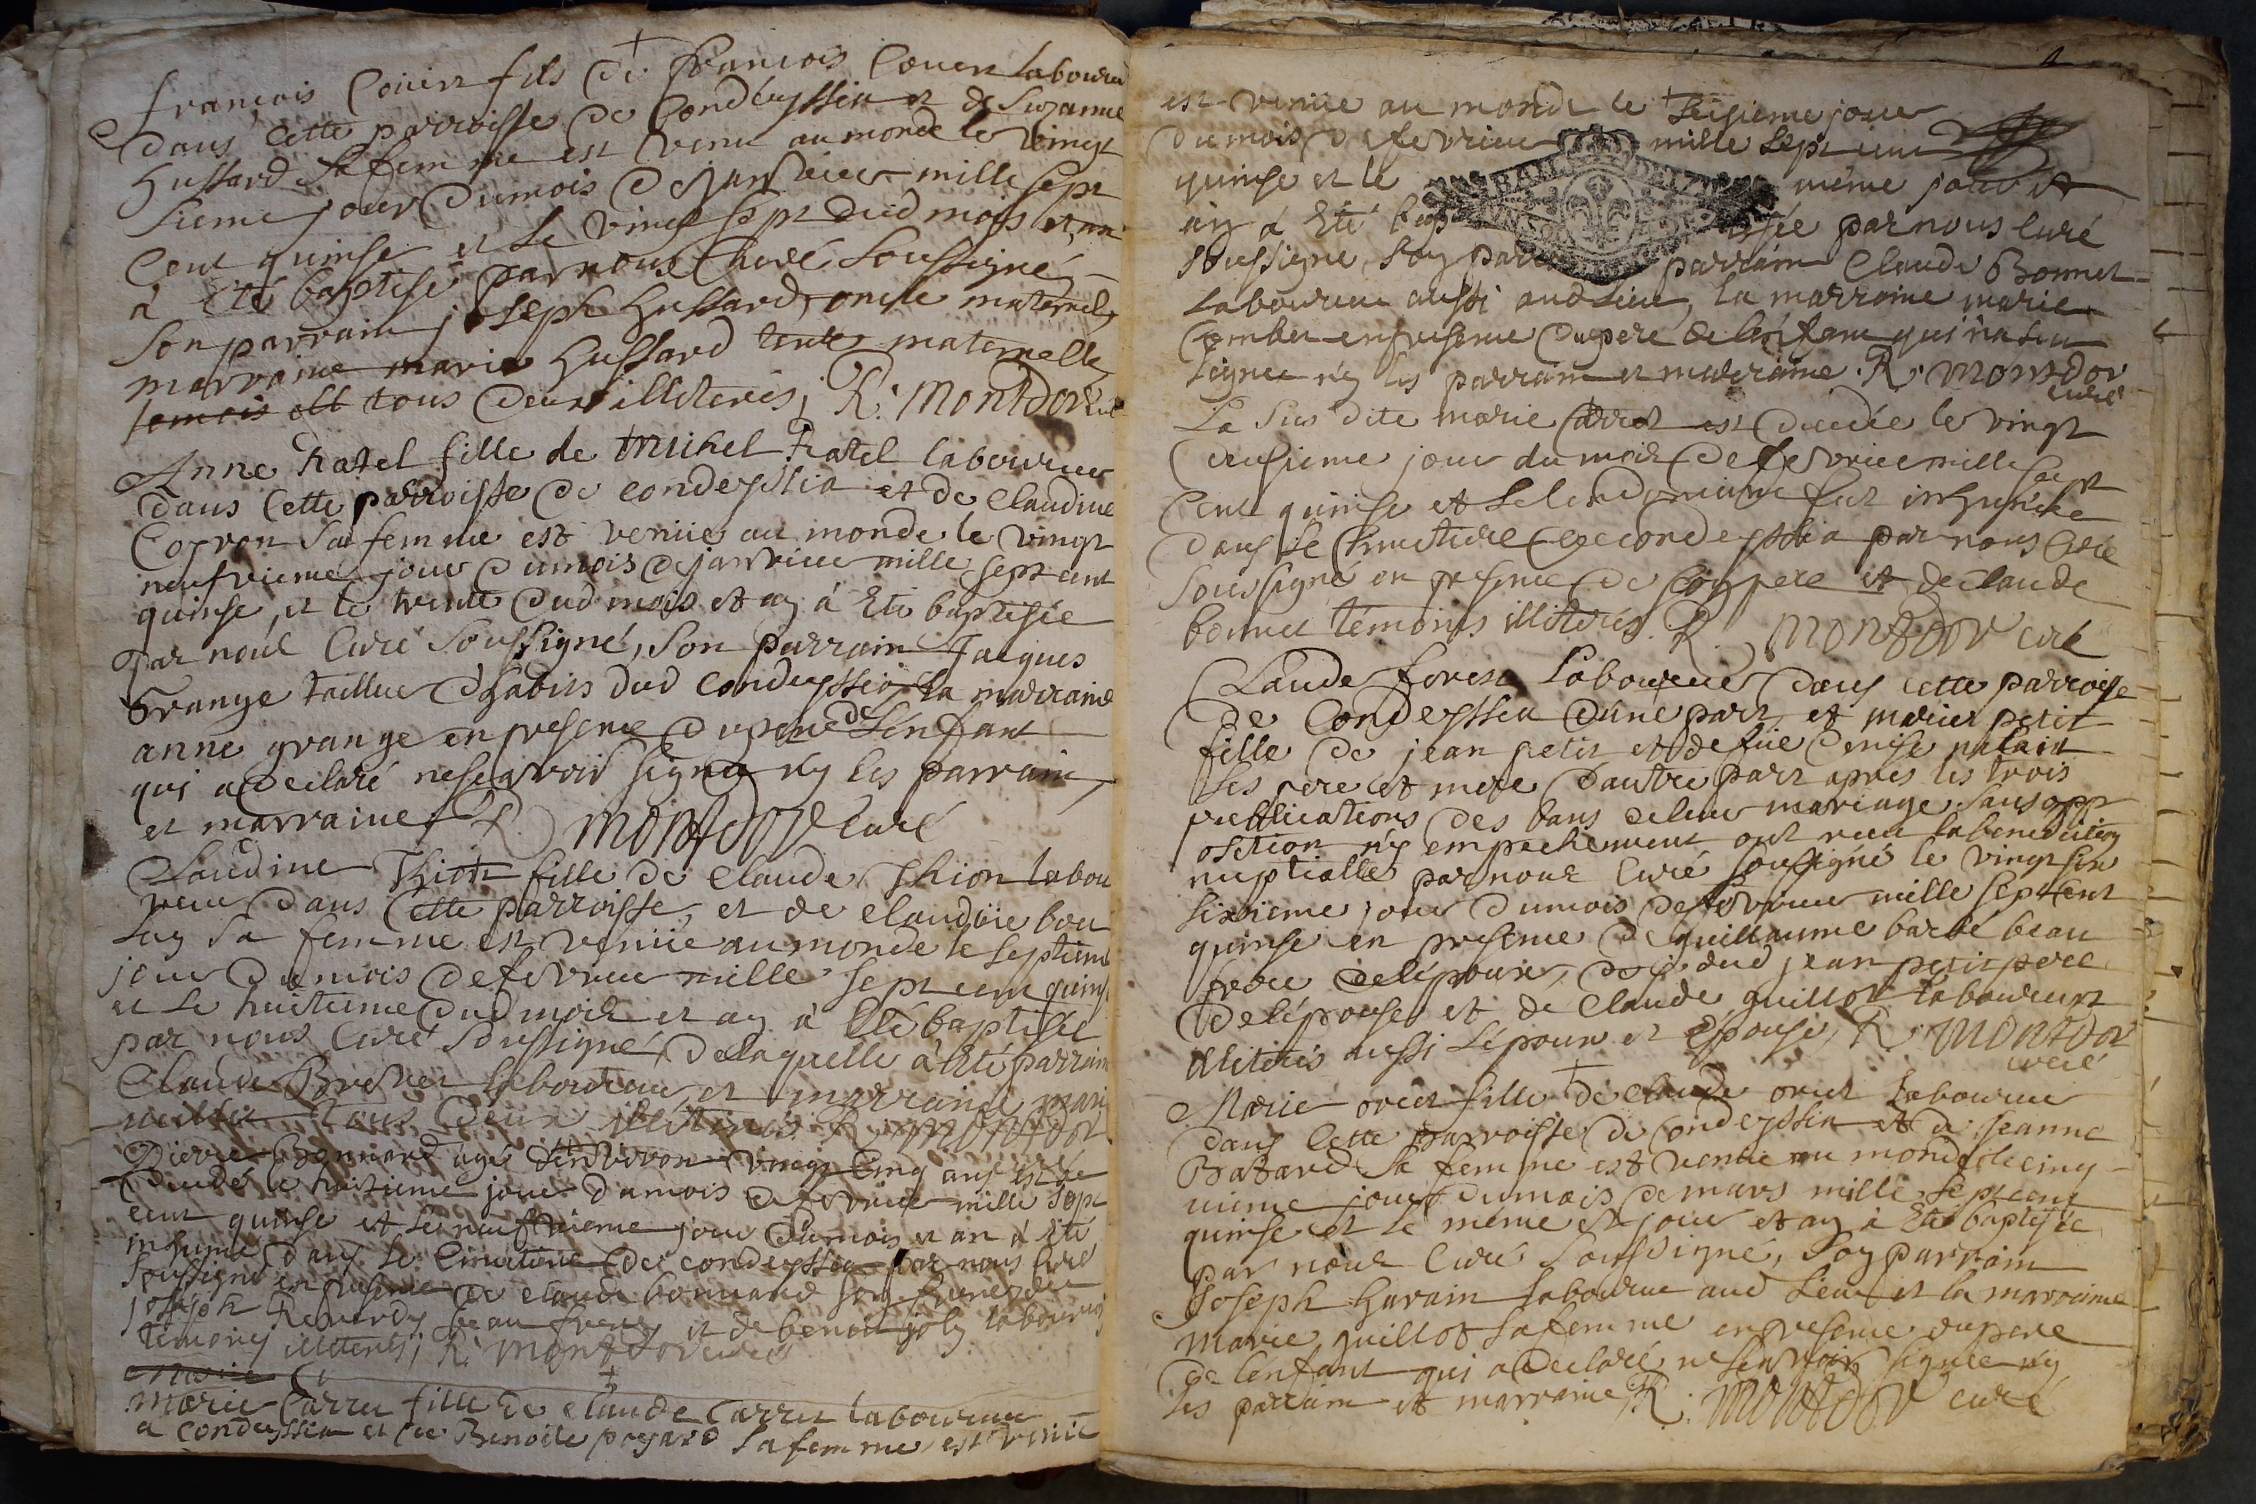 françois Couen fils de françois Couen laboureu
dans cette parroisse de Condeyssia et de Suzanne
hussard sa femme est venu au monde le vingt
sieme jour du mois de janvier mille sept
Cent quinse et le vingt sept dud mois et an
à Eté baptisé par nous Curé soussigné
son parrain joseph hussard, oncle maternel,
marraine marie hussard tente maternelle
tous deux illiterés, R. Montdor
Anne ratel fille de michel ratel laboureur
dans cette parroisse de condeyssia et de Claudine
sa femme est venüe au monde le vingt
neufvieme jour du mois de janvier mille sept cent
quinse, et le trente dud mois et an à Eté baptisée
par nous Curé soussigné, son parrain Jacques
Grange tailleur d'habits dud Condeyssia, la marraine
anne grange en presence du pere de L'enfant
qui a declaré ne sçavoir signer n'y les parrain,
et marraine, R. montdor Curé
Claudine Thion fille de Claude Thion labou
reur dans cette parroisse, et de claudine bou
sa femme est venüe au monde le septieme
jour du mois de fevrier mille sept cent quinse
et le huitieme dud mois et an à Eté baptisée
par nous Curé soussigné, de laquelle à Eté parrain
Claude laboureur, et marraine marie
tous deux illiterés R. montdor
Pierre Bonnard agé d'environ vingt Cinq ans est
decedé le huitieme jour du mois de fevrier mille sept
cent quinse et le neufvieme jour du mois et an à été
inhumé dans le Cimetiere de condeyssia par nous Curé
soussigné en presence de claude bonnard son frere, de
joseph beau frere, et de benoit joly laboureurs
temoins illiterés, R. montdor curé
marie Carret fille de claude Carret laboureur
a Condeyssia et de Benoite sa femme, est venüe
est venüe au monde le seisieme jour
du mois de fevrier mille sept cent
quinse et le même jour et
an à Eté baptisée par nous Curé
soussigné, son parrain Claude Bonnet
laboureur aussi aud Lieu, la marraine marie
en presence du pere de l'enfant qui n'a sceu
signer n'y les parrain et marraine. R. montdor
curé
La sus dite marie Carret est decedée le vingt
deusieme jour du mois de fevrier mille sept
Cent quinse et le lendemain fut inhumée
dans le Cimetiere de condeyssia par nous Curé
soussigné en presence de son pere et de Claude
bonnet témoins illiterés. R. montdor curé
Claude forest Laboureur dans cette parroisse
de Condeyssia d'une part, et marie petit
fille de jean petit et de füe Denise
ses pere et mere d'autre part apres les trois
publications des bans de leur mariage sans opp
osition n'y empechement ont receu la benediction
nuptialle par nous Curé soussigné le vingt
sixieme jour du mois de fevrier mille sept cent
quinse en presence de guillaume barbé beau
frere de l'epoux, de dud jean petit pere
de l'épouse et de Claude guillot laboureurs
illiterés aussi L'époux et épouse, R. montdor
curé
Marie fille de claude laboureur
dans cette parroisse de condeyssia et de jeanne
Batard sa femme est venüe au monde le cinq
uieme jour du mois de mars mille sept cent
quinse et le même jour et an à Eté baptisée
par nous Curé soussigné, son parrain
Joseph laboureur aud Lieu et la marraine
marie guillot sa femme en presence du pere
de L'enfant qui a declaré ne sçavoir signer n'y
les parrain et marraine, R. montdor curé